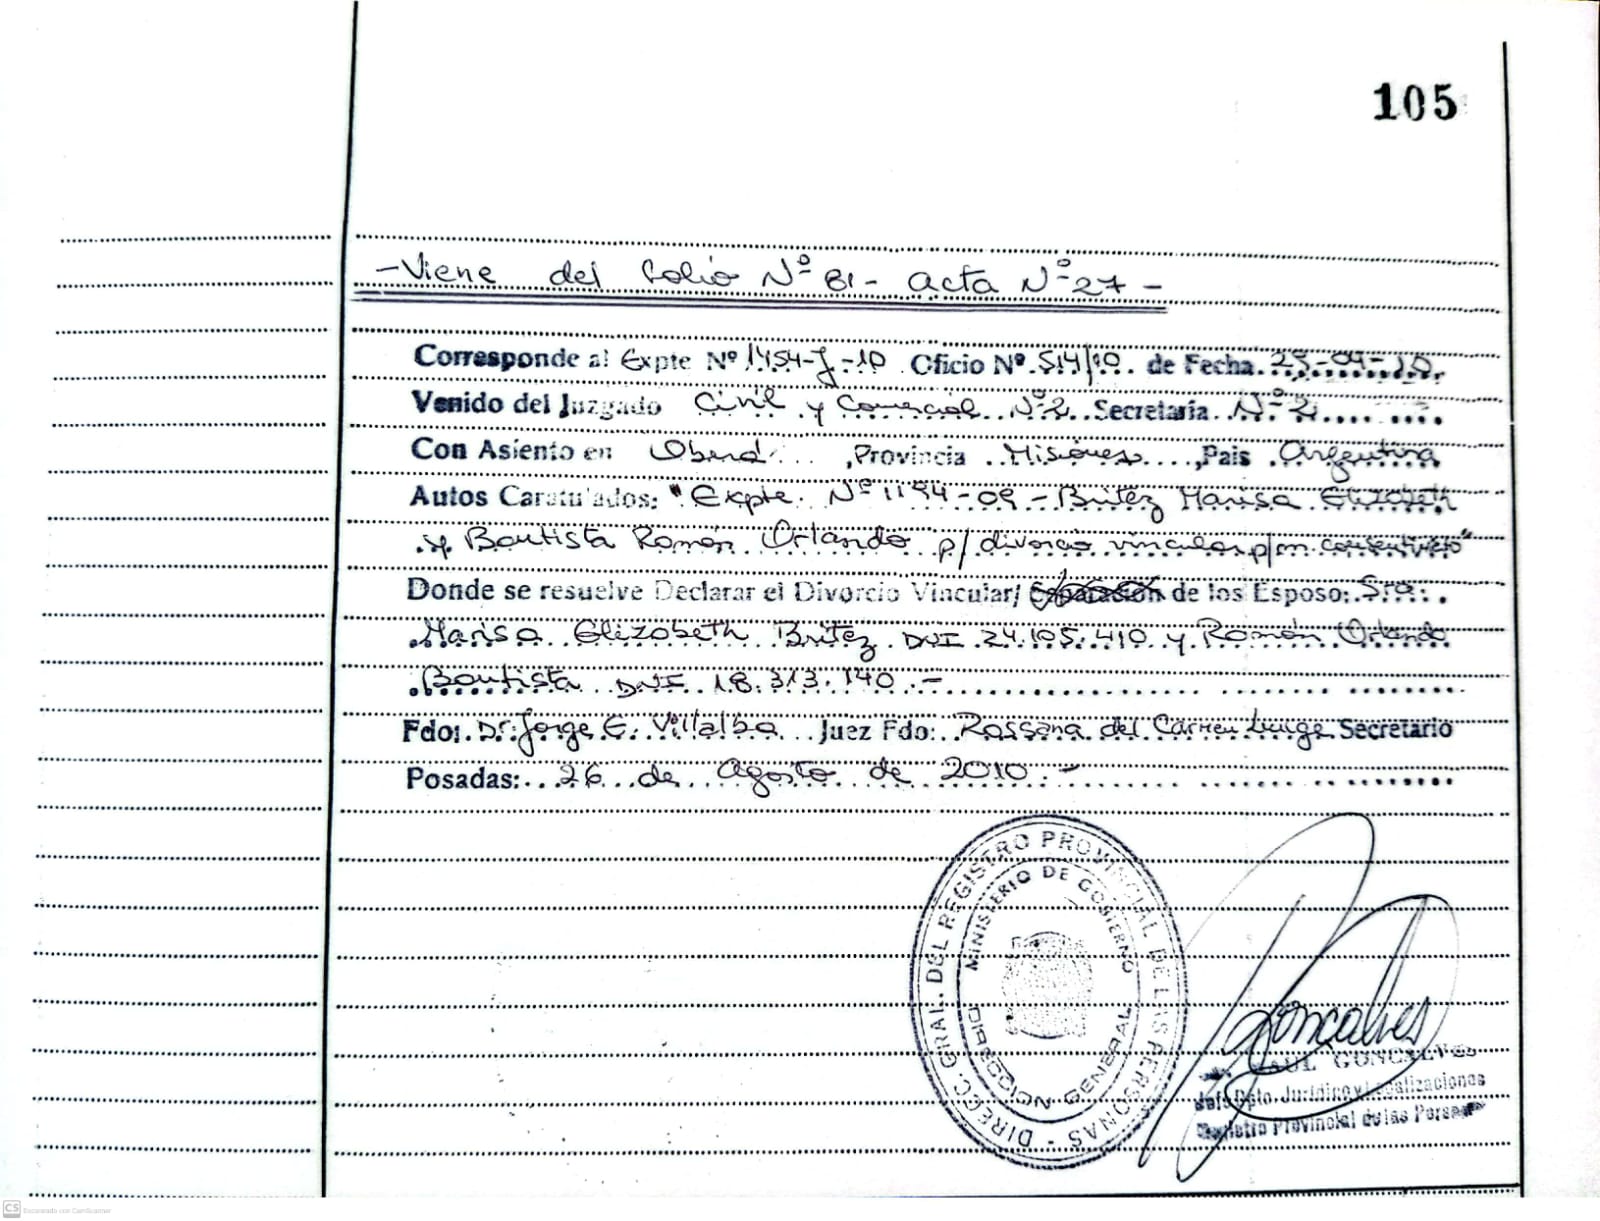 105
-Viene del folio Nº 81- acta Nº 27-
Corresponde al Expte Nº 1454-J-10 Oficio Nº 514/10. de Fecha 23-04-10
Venido del Juzgado Civil y Comercial Nº 2 Secretaria Nº 2
Con Asiento en Oberá, Provincia Misiones, Pais Argentina
Autos Caratulados: "Expte. Nº 1194-09 - Britez Marisa Elizabeth
y Bautista Román Orlando p/ divorcio vincular p/m
Donde se resuelve Declarar el Divorcio Vincular/ Separación de los Esposo: Sra.
Marisa Elizabeth Britez DNI 24.105.410 y Román Orlando
Bautista DNI 18.313.140.-
Fdo: Dr. Jorge E. Villalba Juez Fdo: Rossana del Carmen Secretario
Posadas: 26 de Agosto de 2010.-
DIRECC. GRAL. DEL REGISTRO PROVINCIAL DE LAS PERSONAS -
MINISTERIO DE GOBIERNO
DIRECCION GENERAL
Goncalves
RAUL GONCALVES
Jefe Dpto. Jurídico y Legalizaciones
Registro Provincial de las Personas
CS Escaneado con CamScanner